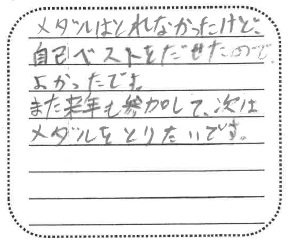 メダルはとれなかったけど、
自己ベストをだせたので、
よかったです。
また来年も参加して、次は
メダルをとりたいです。